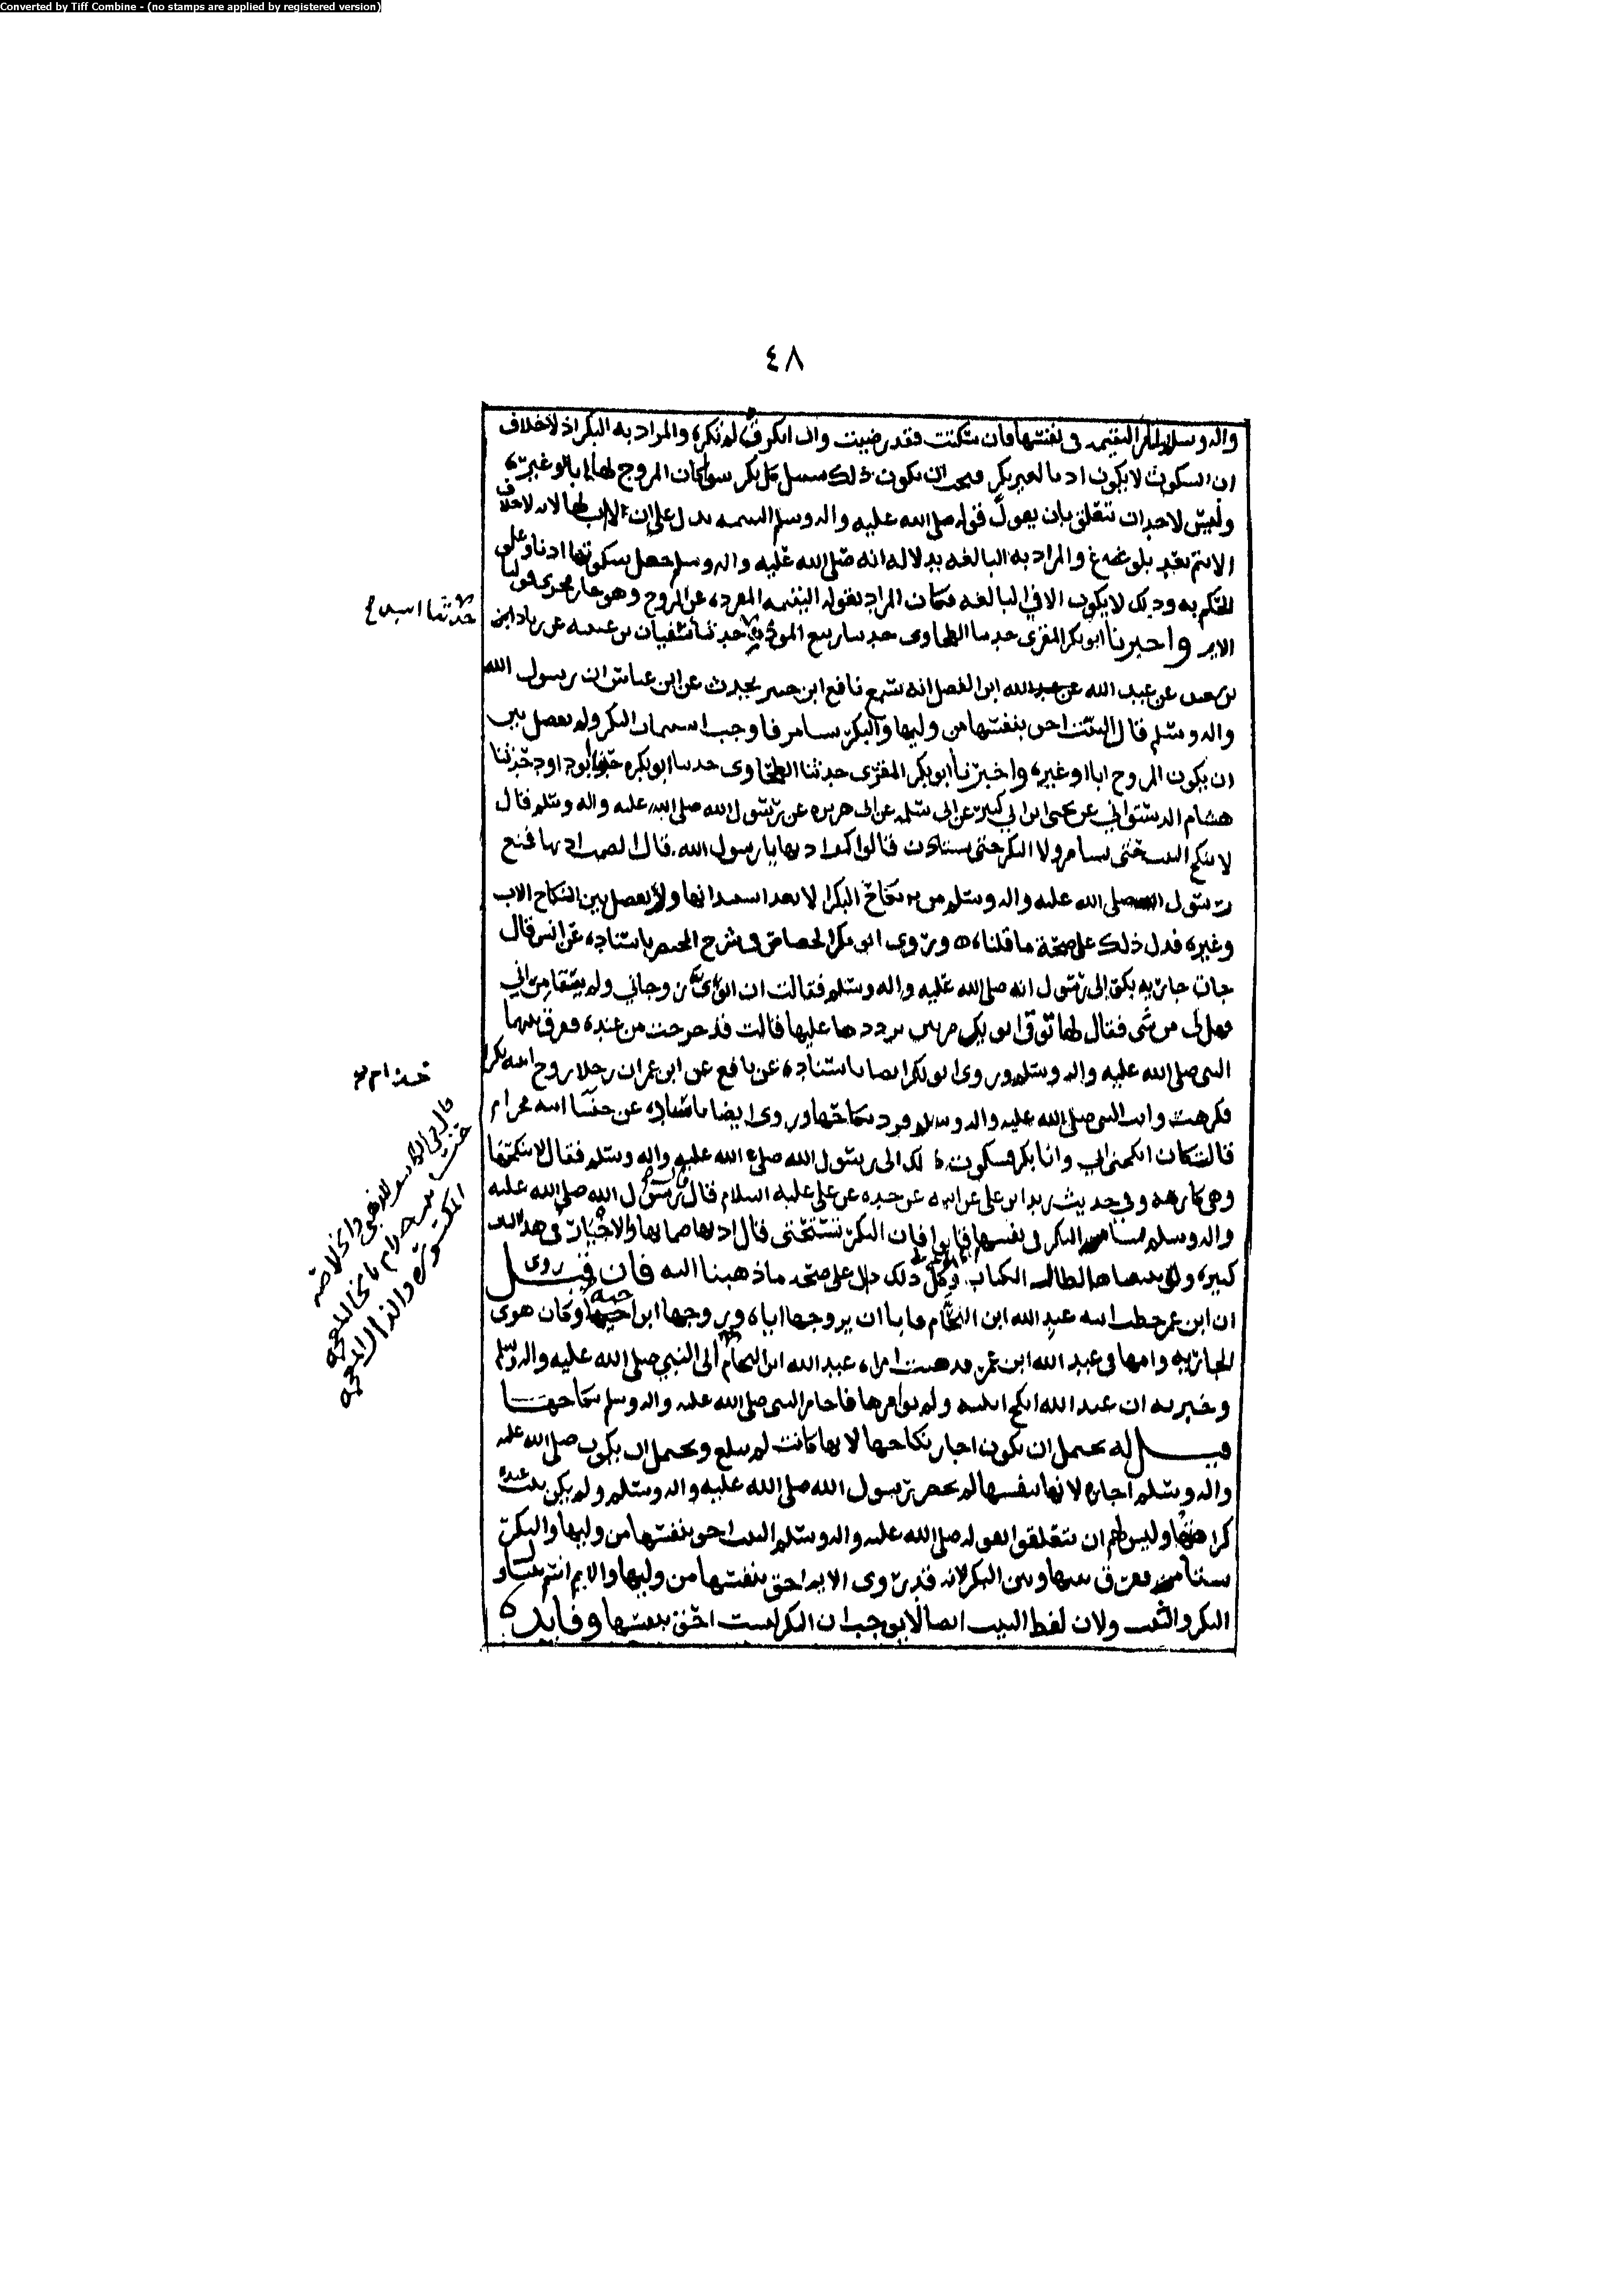 Converted by Tiff Combine - (no stamps are applied by registered version)
٤٨
واله وسلم اليتيمه في نفسها فان سكتت فقد رضيت وان انكرت لم تكره والمراد به البكر اذ لا خلاف
ان السكوت لا يكون اذنا لغير بكر فيجب ان يكون ذلك سبيل كل بكر سوا كان المزوج لها ابا او غيره
وليس لاحد ان يتعلق بان يقول قوله صلى الله عليه واله وسلم اليتيمه يدل على ان لا اب لها لانه لا خلاف
الاسم بعد بلوغ والمراد به البالغه بدلاله انه صلى الله عليه واله وسلم جعل سكوتها اذنا وعلق
الحكم به وذلك لا يكون الا في البالغه فكان المراد بقوله اليتيمه المفرده عن الزوج وهو جار مجرى قولنا
الايم واخبرنا ابو بكر المقري حدثنا الطحاوي حدثنا ربيع الموذن حدثنا سفيان بن عيينه عن زياد ابن
بن سعد عن عبد الله عن عبد الله ابن الفضل انه سمع نافع ابن جبير يحدث عن ابن عباس ان رسول الله
واله وسلم قال الثيب احق بنفسها من وليها والبكر تستامر فاوجب استيمار البكر ولم يفصل بين
ان يكون المزوج ابا او غيره واخبرنا ابو بكر المقري حدثنا الطحاوي حدثنا ابو بكره حدثنا ابو داود حدثنا
هشام الدستوائي عن يحيى ابن ابي كبير عن ابي سلمه عن ابي هريره عن رسول الله صلى الله عليه واله وسلم قال
لا تنكح الثيب حتى تستامر ولا البكر حتى تستاذن قالوا كيف اذنها يا رسول الله قال الصمت اذنها فمنع
رسول الله صلى الله عليه واله وسلم من نكاح البكر الا بعد استيذانها ولم يفصل بين انكاح الاب
وغيره فدل ذلك على صحة ما قلناه وروى ابو بكر الجصاص في شرح المختصر باسناده عن انس قال
جات جاريه بكر الى رسول الله صلى الله عليه واله وسلم فقالت ان ابي زوجني ولم يستامرني
فهل لي من شي فقال لها ابوك مرتين يرددها عليها قالت قد خرجت من عنده ففرق بينهما
النبي صلى الله عليه واله وسلم وروى ابو بكر ايضا باسناده عن نافع عن ابن عمر ان رجلا زوج ابنته بكرا
فكرهت واتت النبي صلى الله عليه واله وسلم فرد نكاحها وروى ايضا باسناده عن خنسا ابنه خدام
قالت انكحني ابي وانا بكر فشكوت ذلك الى رسول الله صلى الله عليه واله وسلم فقال لا تنكحها
وهي كارهه وفي حديث زيد ابن علي عن ابيه عن جده عن علي عليه السلام قال قال رسول الله صلى الله عليه
واله وسلم تستامر البكر في نفسها قالوا فان البكر تستحي قال اذنها صماتها والاخبار في هذا الباب
كبيره ولو تقصيناها لطال الكتاب وكل ذلك دال على صحة ما ذهبنا اليه فان قيل روى
ان ابن عمر خطب ابنه عبد الله ابن النحام فابا ان يزوجها اياه وزوجها ابن اخيه وكان هوى
الجاريه وامها في عبد الله ابن عمر فذهبت امراه عبد الله ابن النحام الى النبي صلى الله عليه واله وسلم
وخبرته ان عبد الله انكح ابنته ولم يوامرها فاجاز النبي صلى الله عليه واله وسلم نكاحها
قيل له يحتمل ان يكون اجاز نكاحها لانها كانت لم تبلغ ويحتمل ان يكون صلى الله عليه
واله وسلم اجازه لانها بنفسها لم تحضر رسول الله صلى الله عليه واله وسلم ولم يكن ثبت عنده
كراهتها وليس لهم ان يتعلقوا بقوله صلى الله عليه واله وسلم الثيب احق بنفسها من وليها والبكر
تستامر ففرق بينها وبين البكر لانه قد روى الايم احق بنفسها من وليها والايم اسم يتناول
البكر والثيب ولان لفظ الثيب ايضا لا يوجب ان البكر ليست احق بنفسها وفايده
حدثنا اسد
خذام
قال في الاكمال للذهبي والخلاصه
خنسا بنت خذام بالخا المعجمه
المكسوره والذال المعجمه